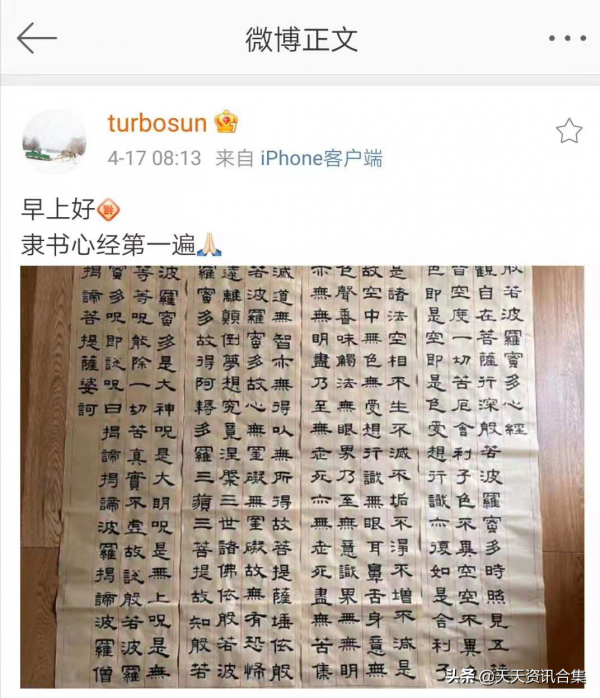 微博正文
turbosun
4-17 08:13 来自 iPhone客户端
早上好
隶书心经第一遍
般若波羅蜜多心經
觀自在菩薩行深般若波羅蜜多時照見五蘊
皆空度一切苦厄舍利子色不異空空不異
色即是空即是色受想行識亦復如是舍利子
是諸法空相不生不滅不垢不淨不增不減是
故空中無色無受想行識無眼耳鼻舌身意無
色聲香味觸法無眼界乃至無意識界無無明
亦無無明盡乃至無老死亦無老死盡無苦集
滅道無智亦無得以無所得故菩提薩埵依般
若波羅蜜多故心無罣礙無罣礙故無有恐怖
遠離顛倒夢想究竟涅槃三世諸佛依般若波
羅蜜多故得阿耨多羅三藐三菩提故知般若
波羅蜜多是大神呪是大明呪是無上呪是無
等等呪能除一切苦真實不虛故說般若波羅
蜜多呪即說呪曰揭諦揭諦波羅揭諦波羅僧
揭諦菩提薩婆訶
头条 @天天资讯合集